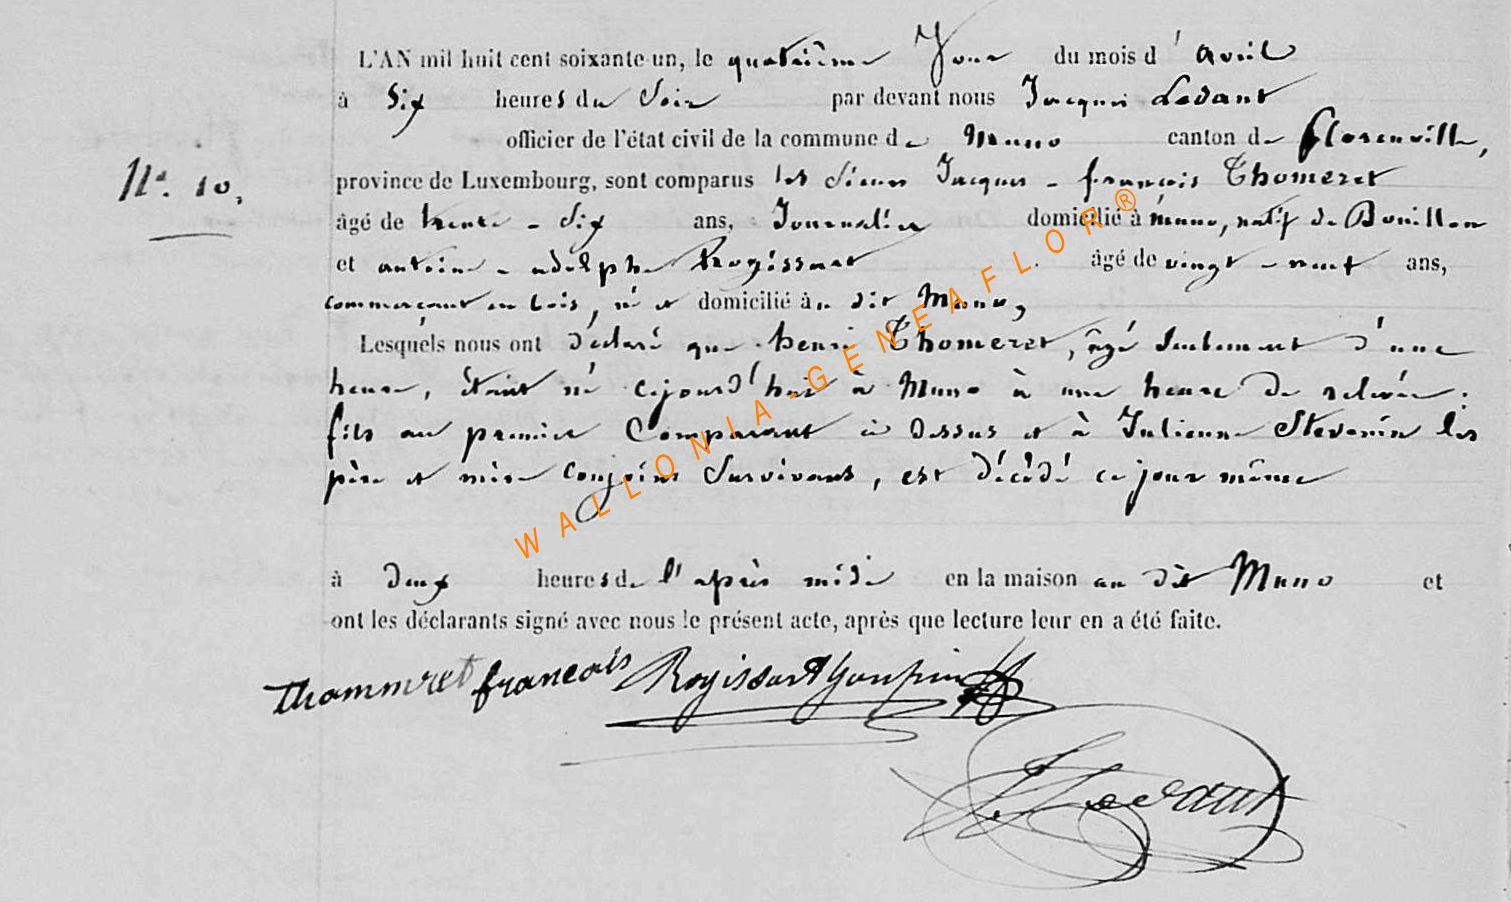 L'AN mil huit cent soixante-un, le quatrième Jour du mois d'avril
à Six heures du Soir par devant nous Jacques Ledant
officier de l'état civil de la commune de Muno canton de florenville,
N.° 10.
province de Luxembourg, sont comparus les Sieurs Jacques - françois Thomeret
âgé de trente - Six ans, Journalier domicilié à muno, natif de Bouillon
et antoine - adolphe Rogissart âgé de vingt - neuf ans,
commerçant en bois, né et domicilié à dit Muno,
Lesquels nous ont déclaré que henri Thomeret, âgé seulement d'une
heure, étant né cejourd'hui à Muno à une heure de relevée :
fils au premier Comparant ci dessus et à Julienne Stevenin les
père et mère conjoins Survivans, est décédé ce jour même
à deux heures de l'après midi en la maison au dit Muno et
ont les déclarants signé avec nous le présent acte, après que lecture leur en a été faite.
Thommret francois Rogissart
Ledant
WALLONIA-GENEAFLOR®